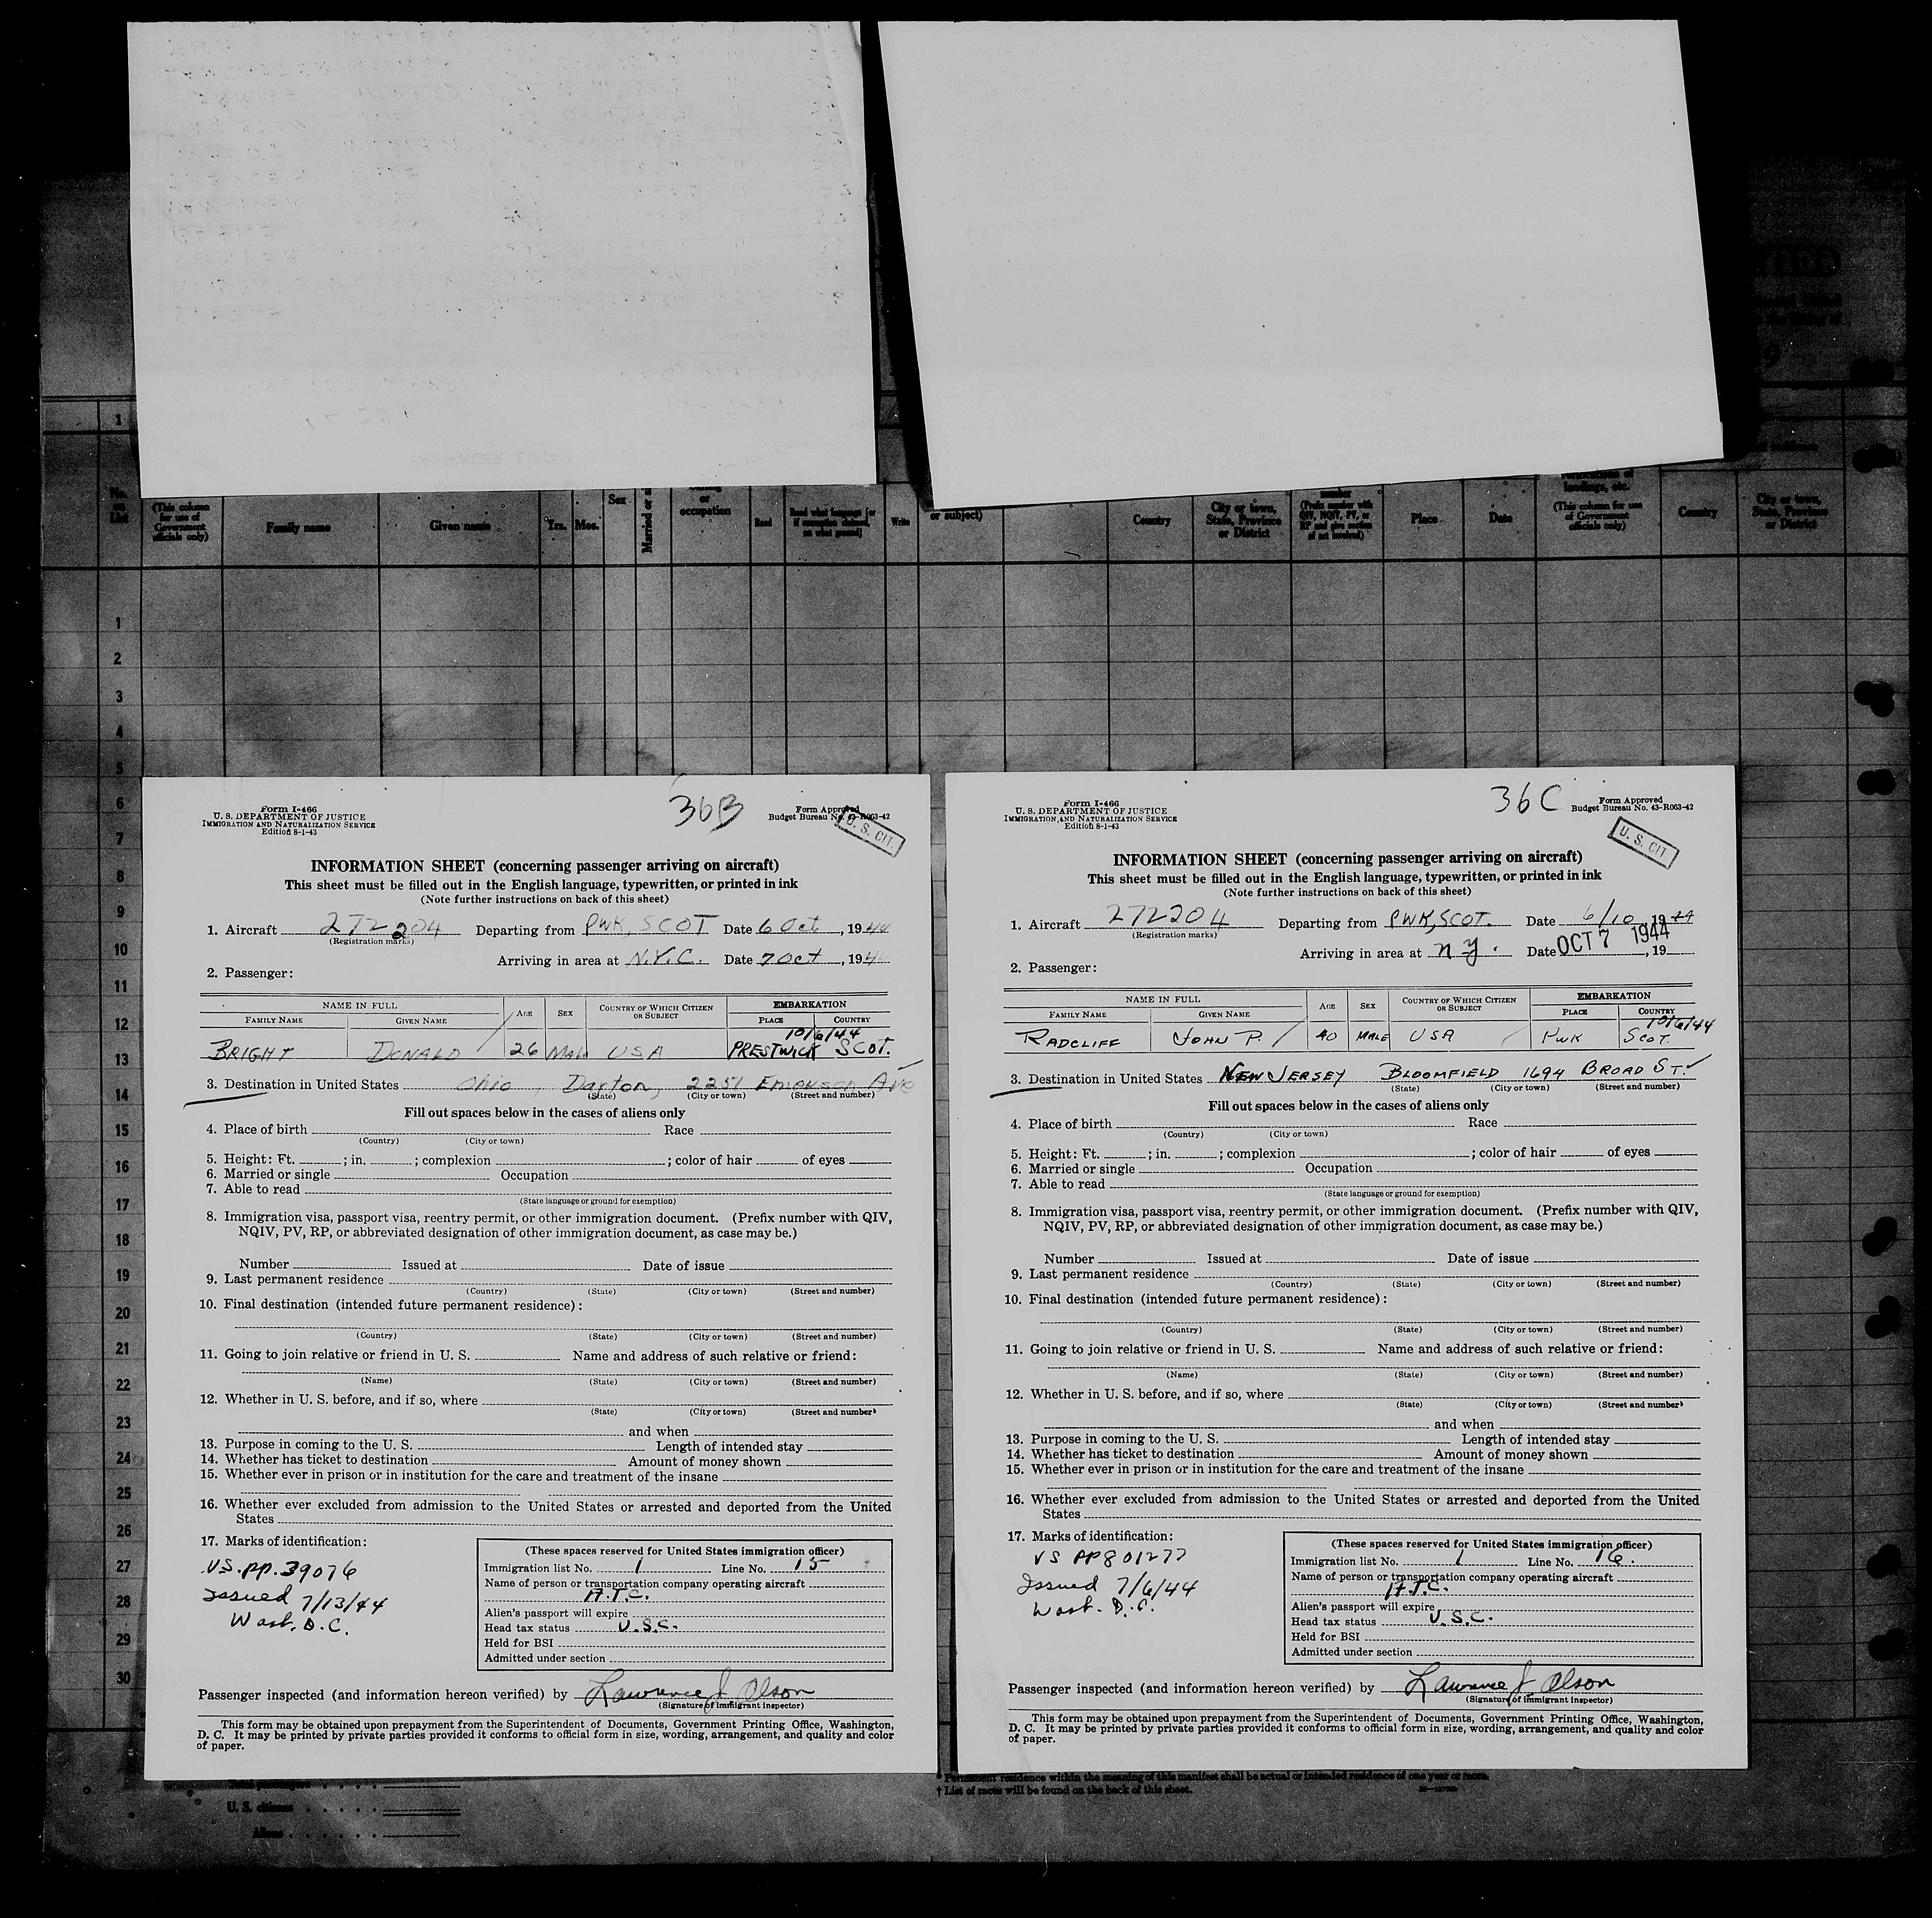 1
No. on List
(This column for use of Government officials only)
Family name
Given name
Yrs.
Mos.
Sex
Married or
or occupation
Read
Read what language [or if exemption claimed, on what ground]
Write
or subject)
Country
City or town, State, Province or District
number (Prefix number with QIV, NQIV, PV, or RP and give section of act involved)
Place
Date
landings, etc. (This column for use of Government officials only)
Country
City or town, State, Province or District
1
2
3
4
5
6
7
8
9
10
11
12
13
14
15
16
17
18
19
20
21
22
23
24
25
26
27
28
29
30
Form I-466
U. S. DEPARTMENT OF JUSTICE
IMMIGRATION AND NATURALIZATION SERVICE
Edition 8-1-43
36B
Form Approved
Budget Bureau No. 43-R063-42
U. S. CIT.
INFORMATION SHEET (concerning passenger arriving on aircraft)
This sheet must be filled out in the English language, typewritten, or printed in ink
(Note further instructions on back of this sheet)
1. Aircraft 272204 Departing from PWK, SCOT Date 6 Oct, 1944
(Registration marks)
Arriving in area at N.Y.C. Date 7 Oct, 1944
2. Passenger:
NAME IN FULL AGE SEX COUNTRY OF WHICH CITIZEN OR SUBJECT EMBARKATION
FAMILY NAME GIVEN NAME PLACE COUNTRY
10/6/44
BRIGHT DONALD 26 Male USA PRESTWICK SCOT.
3. Destination in United States Ohio, Dayton, 2251 Emerson Ave
(State) (City or town) (Street and number)
Fill out spaces below in the cases of aliens only
4. Place of birth Race
(Country) (City or town)
5. Height: Ft. ; in. ; complexion ; color of hair of eyes
6. Married or single Occupation
7. Able to read
(State language or ground for exemption)
8. Immigration visa, passport visa, reentry permit, or other immigration document. (Prefix number with QIV,
NQIV, PV, RP, or abbreviated designation of other immigration document, as case may be.)
Number Issued at Date of issue
9. Last permanent residence
(Country) (State) (City or town) (Street and number)
10. Final destination (intended future permanent residence):
(Country) (State) (City or town) (Street and number)
11. Going to join relative or friend in U. S. Name and address of such relative or friend:
(Name) (State) (City or town) (Street and number)
12. Whether in U. S. before, and if so, where
(State) (City or town) (Street and number)
and when
13. Purpose in coming to the U. S. Length of intended stay
14. Whether has ticket to destination Amount of money shown
15. Whether ever in prison or in institution for the care and treatment of the insane
16. Whether ever excluded from admission to the United States or arrested and deported from the United
States
17. Marks of identification:
US. pp. 39076
Issued 7/13/44
Wash. D.C.
(These spaces reserved for United States immigration officer)
Immigration list No. 1 Line No. 15
Name of person or transportation company operating aircraft
A.T.C.
Alien's passport will expire
Head tax status U.S.C.
Held for BSI
Admitted under section
Passenger inspected (and information hereon verified) by Lawrence J. Olson
(Signature of immigrant inspector)
This form may be obtained upon prepayment from the Superintendent of Documents, Government Printing Office, Washington,
D. C. It may be printed by private parties provided it conforms to official form in size, wording, arrangement, and quality and color
of paper.
Form I-466
U. S. DEPARTMENT OF JUSTICE
IMMIGRATION AND NATURALIZATION SERVICE
Edition 8-1-43
36C
Form Approved
Budget Bureau No. 43-R063-42
U. S. CIT.
INFORMATION SHEET (concerning passenger arriving on aircraft)
This sheet must be filled out in the English language, typewritten, or printed in ink
(Note further instructions on back of this sheet)
1. Aircraft 272204 Departing from PWK, SCOT. Date 6/10, 19
(Registration marks)
Arriving in area at N.Y. Date OCT 7 1944, 19
2. Passenger:
NAME IN FULL AGE SEX COUNTRY OF WHICH CITIZEN OR SUBJECT EMBARKATION
FAMILY NAME GIVEN NAME PLACE COUNTRY
10/6/44
RADCLIFF JOHN P. 40 MALE USA PWK SCOT.
3. Destination in United States NEW JERSEY BLOOMFIELD 1694 BROAD ST.
(State) (City or town) (Street and number)
Fill out spaces below in the cases of aliens only
4. Place of birth Race
(Country) (City or town)
5. Height: Ft. ; in. ; complexion ; color of hair of eyes
6. Married or single Occupation
7. Able to read
(State language or ground for exemption)
8. Immigration visa, passport visa, reentry permit, or other immigration document. (Prefix number with QIV,
NQIV, PV, RP, or abbreviated designation of other immigration document, as case may be.)
Number Issued at Date of issue
9. Last permanent residence
(Country) (State) (City or town) (Street and number)
10. Final destination (intended future permanent residence):
(Country) (State) (City or town) (Street and number)
11. Going to join relative or friend in U. S. Name and address of such relative or friend:
(Name) (State) (City or town) (Street and number)
12. Whether in U. S. before, and if so, where
(State) (City or town) (Street and number)
and when
13. Purpose in coming to the U. S. Length of intended stay
14. Whether has ticket to destination Amount of money shown
15. Whether ever in prison or in institution for the care and treatment of the insane
16. Whether ever excluded from admission to the United States or arrested and deported from the United
States
17. Marks of identification:
US PP801277
Issued 7/6/44
Wash. D.C.
(These spaces reserved for United States immigration officer)
Immigration list No. 1 Line No. 16.
Name of person or transportation company operating aircraft
A.T.C.
Alien's passport will expire
Head tax status U.S.C.
Held for BSI
Admitted under section
Passenger inspected (and information hereon verified) by Lawrence J. Olson
(Signature of immigrant inspector)
This form may be obtained upon prepayment from the Superintendent of Documents, Government Printing Office, Washington,
D. C. It may be printed by private parties provided it conforms to official form in size, wording, arrangement, and quality and color
of paper.
Total passengers
U. S. citizens
Aliens
* Permanent residence within the meaning of this manifest shall be actual or intended residence of one year or more.
† List of races will be found on the back of this sheet.